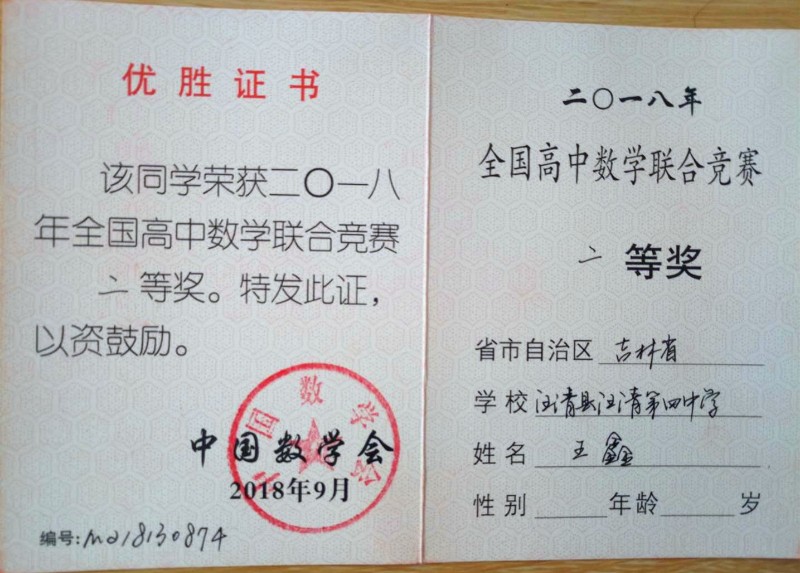 优胜证书
该同学荣获二〇一八
年全国高中数学联合竞赛
二等奖。特发此证，
以资鼓励。
中国数学会
中国数学会
2018年9月
编号:M218130874
二〇一八年
全国高中数学联合竞赛
二等奖
省市自治区 吉林省
学校 汪清县汪清第四中学
姓名 王鑫
性别 年龄 岁